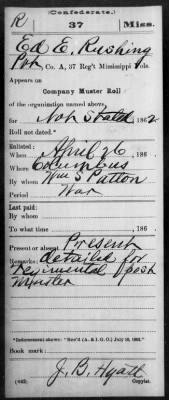 (Confederate.)
R 37 Miss.
Ed E. Rushing
Pvt, Co. A, 37 Reg't Mississippi Vols.
Appears on
Company Muster Roll
of the organization named above,
for Not Stated, 1862
Roll not dated.*
Enlisted:
When April 26, 186 .
Where Columbus
By whom Wm S Patton
Period War
Last paid:
By whom
To what time , 186 .
Present or absent Present
Remarks: detailed for
Regimental post
Master
Book mark:
J. B. Hyatt
(642) Copyist.